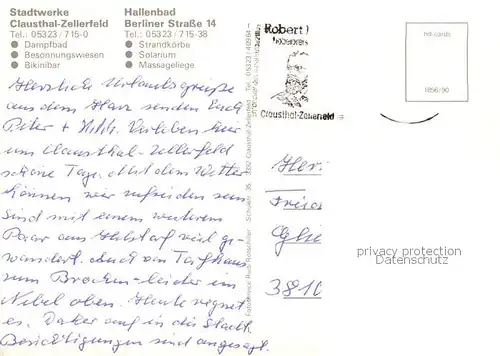 Stadtwerke
Clausthal-Zellerfeld
Tel.: 05323 / 715-0
● Dampfbad
● Besonnungswiesen
● Bikinibar
Hallenbad
Berliner Straße 14
Tel.: 05323 / 715-38
● Strandkörbe
● Solarium
● Massageliege
Herzliche Urlaubsgrüße
aus dem Harz senden Euch
Peter + Hilde. Verleben hier
um Clausthal-Zellerfeld
schöne Tage. Mit dem Wetter
können wir zufrieden sein.
Sind mit einem weiteren
Paar aus viel ge-
wandert. Auch von Torfhaus
zum Brocken - leider im
Nebel oben. Heute regnet
es. Daher auf in die Stadt.
Besichtigungen sind angesagt.
Robert
Clausthal-Zellerfeld
hit-cards
1856/90
3810
privacy protection
Datenschutz